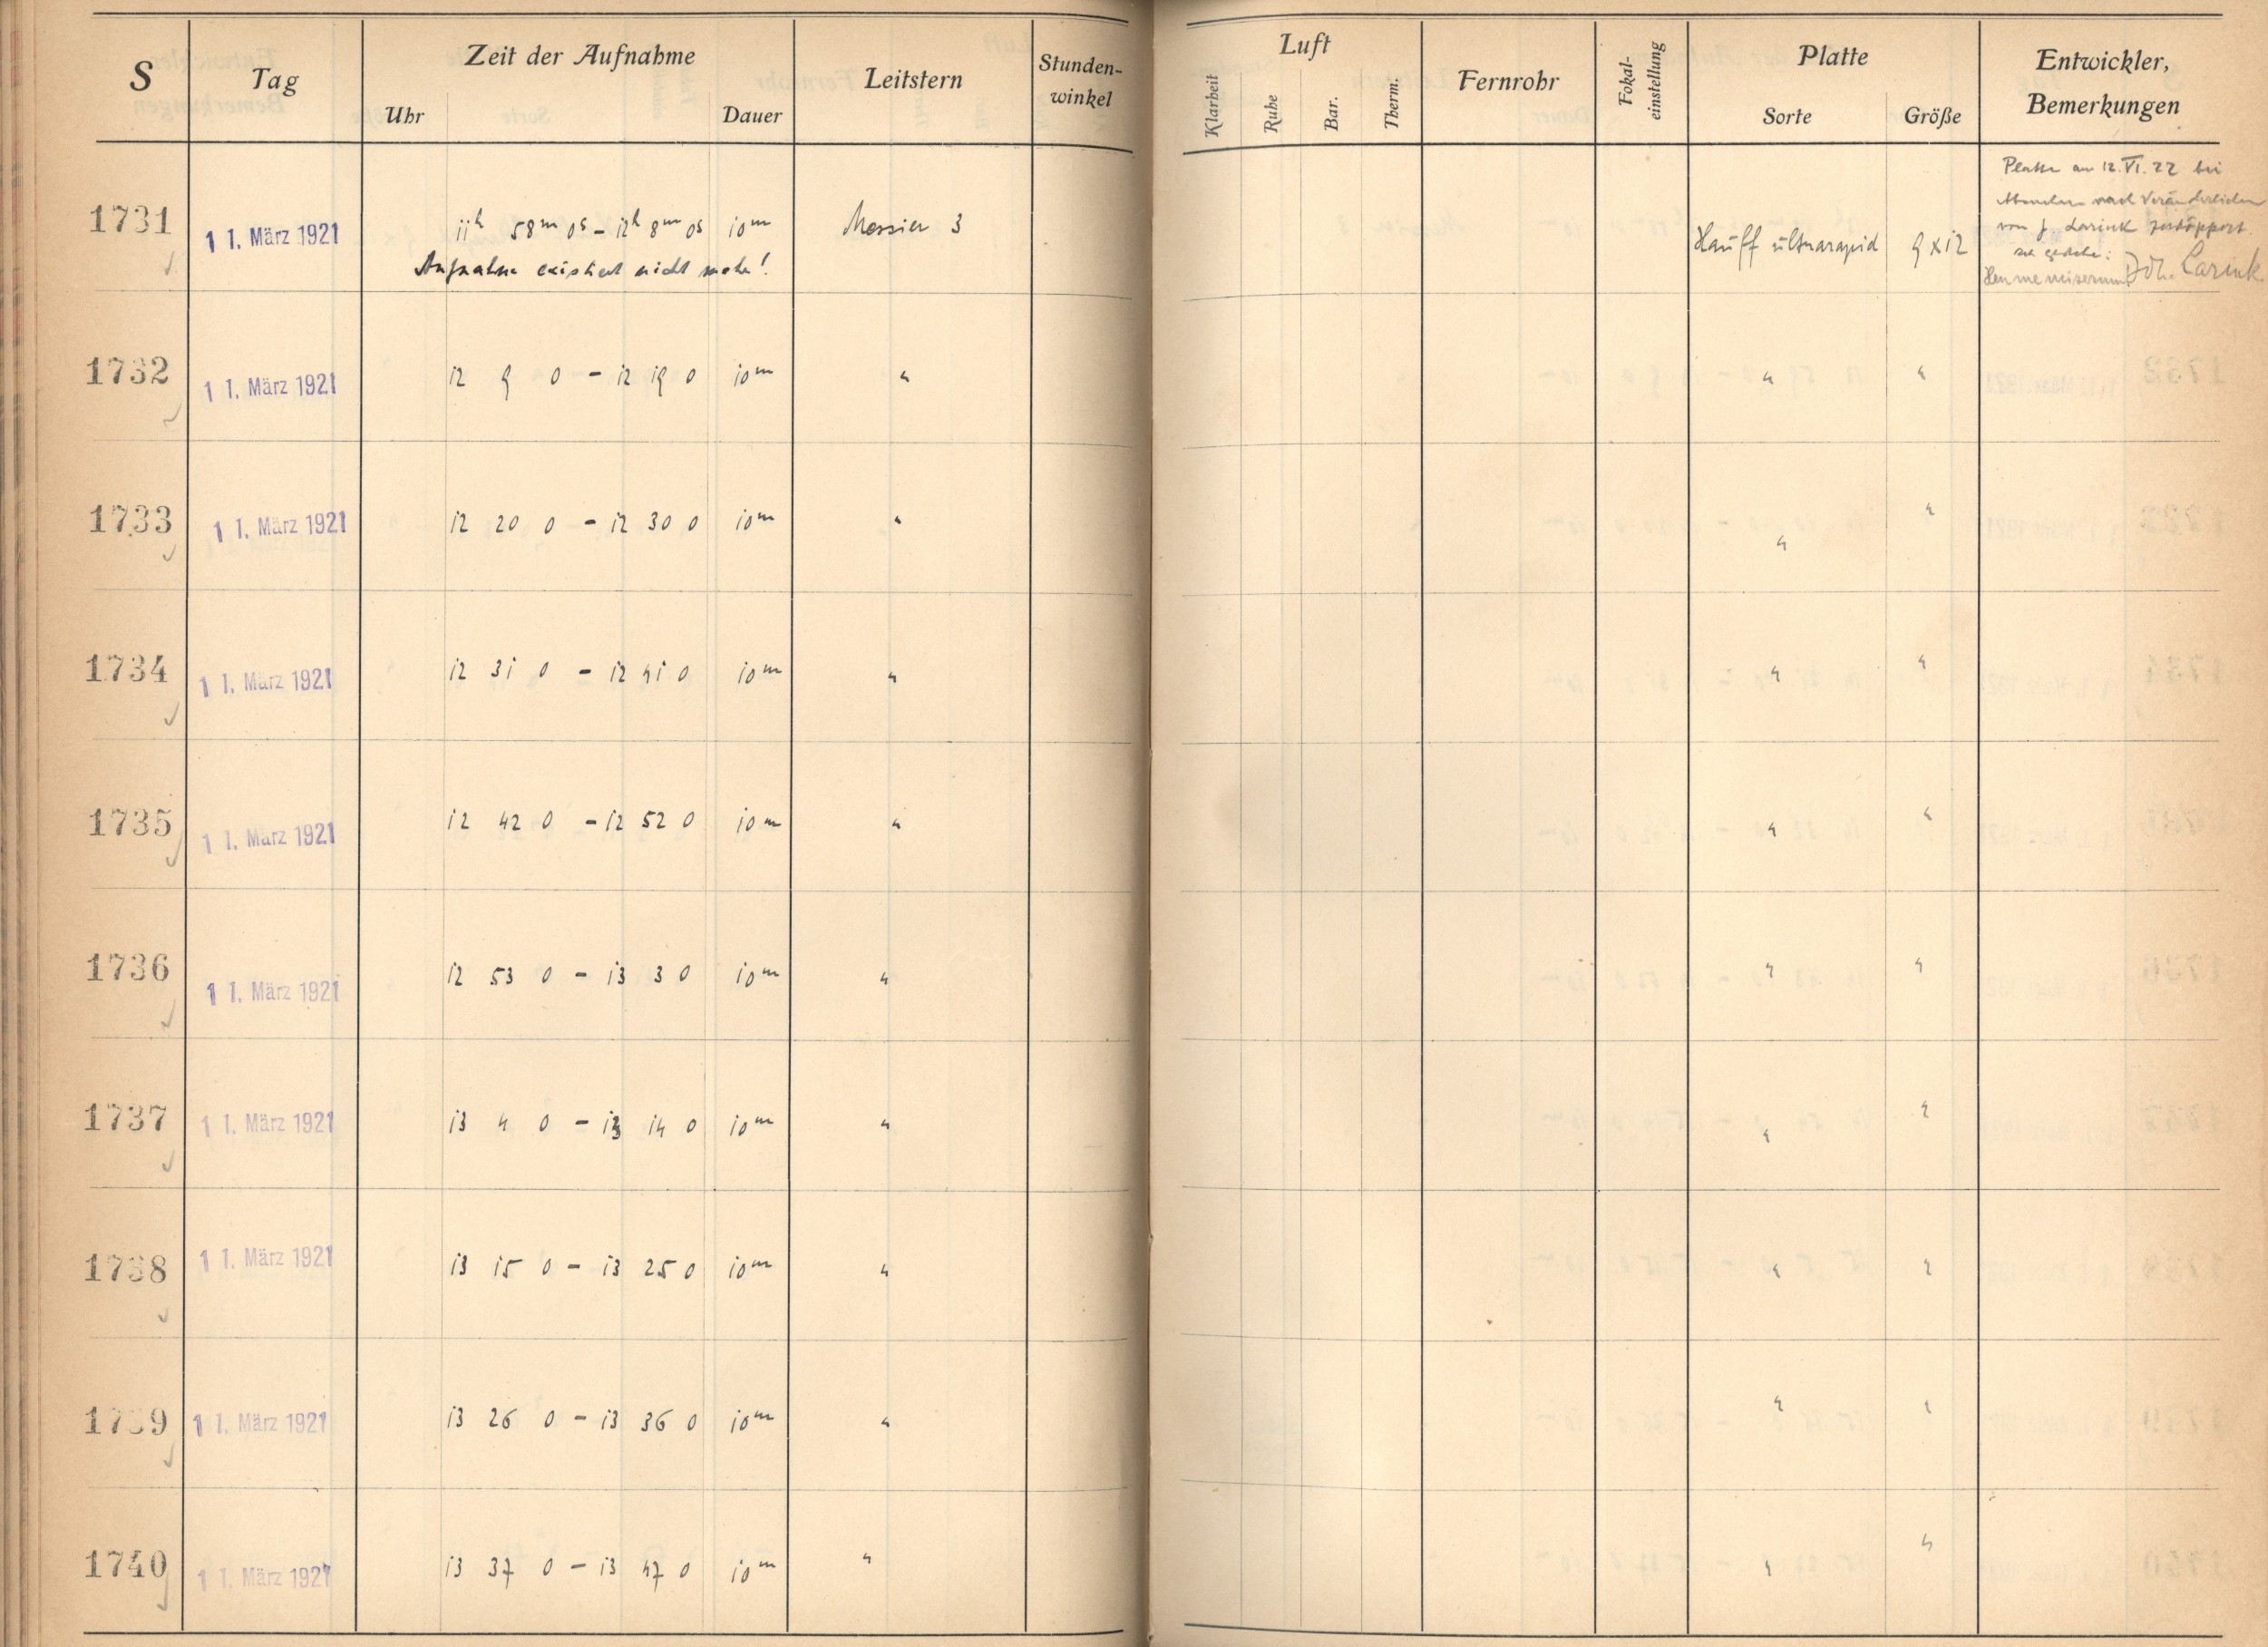 S Tag Zeit der Aufnahme Leitstern Stunden-winkel Luft Fernrohr Fokal-einstellung Platte Entwickler, Bemerkungen
Uhr Dauer Klarheit Ruhe Bar. Therm. Sorte Größe
Platte am 12. VI. 22 bei
nach Veränderlichen
von J. Larink
1731 11. März 1921 11h 58m 0s - 12h 8m 0s 10m Messier 3 Hauff ultrarapid 9x12
Aufnahme existiert nicht mehr!
Heu me miserum! Joh. Larink
1732 11. März 1921 12 9 0 - 12 19 0 10m " " "
1733 11. März 1921 12 20 0 - 12 30 0 10m " " "
1734 11. März 1921 12 31 0 - 12 41 0 10m " " "
1735 11. März 1921 12 42 0 - 12 52 0 10m " " "
1736 11. März 1921 12 53 0 - 13 3 0 10m " " "
1737 11. März 1921 13 4 0 - 13 14 0 10m " " "
1738 11. März 1921 13 15 0 - 13 25 0 10m " " "
1739 11. März 1921 13 26 0 - 13 36 0 10m " " "
1740 11. März 1921 13 37 0 - 13 47 0 10m " " "